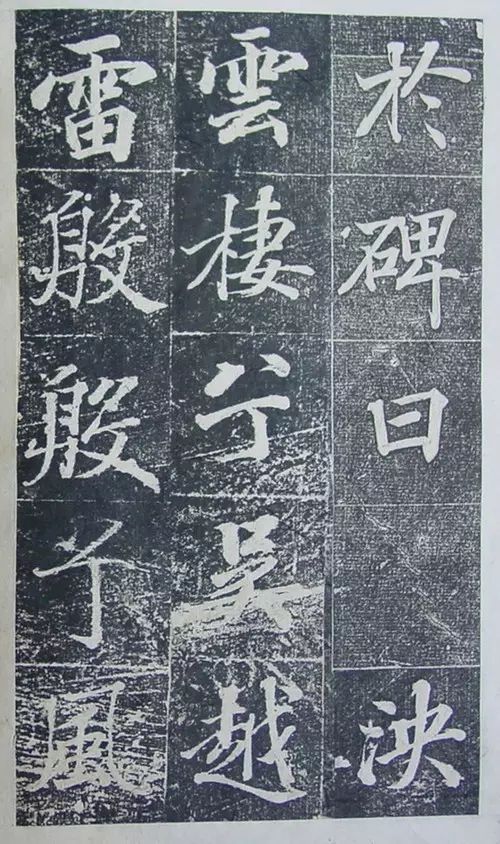 於碑曰 泱
雲棲兮吳越
雷殷殷兮風